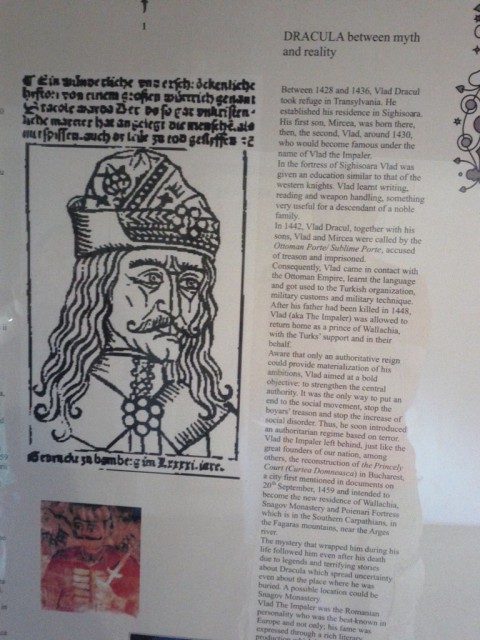 1
DRACULA between myth
and reality
Between 1428 and 1436, Vlad Dracul
took refuge in Transylvania. He
established his residence in Sighisoara.
His first son, Mircea, was born there,
then, the second, Vlad, around 1430,
who would become famous under the
name of Vlad the Impaler.
In the fortress of Sighisoara Vlad was
given an education similar to that of the
western knights. Vlad learnt writing,
reading and weapon handling, something
very useful for a descendant of a noble
family.
In 1442, Vlad Dracul, together with his
sons, Vlad and Mircea were called by the
Ottoman Porte/ Sublime Porte, accused
of treason and imprisoned.
Consequently, Vlad came in contact with
the Ottoman Empire, learnt the language
and got used to the Turkish organization,
military customs and military technique.
After his father had been killed in 1448,
Vlad (aka The Impaler) was allowed to
return home as a prince of Wallachia,
with the Turks' support and in their
behalf.
Aware that only an authoritative reign
could provide materialization of his
ambitions, Vlad aimed at a bold
objective: to strengthen the central
authority. It was the only way to put an
end to the social movement, stop the
boyars' treason and stop the increase of
social disorder. Thus, he soon introduced
an authoritarian regime based on terror.
Vlad the Impaler left behind, just like the
great founders of our nation, among
others, the reconstruction of the Princely
Court (Curtea Domneasca) in Bucharest,
a city first mentioned in documents on
20th September, 1459 and intended to
become the new residence of Wallachia,
Snagov Monastery and Poienari Fortress
which is in the Southern Carpathians, in
the Fagaras mountains, near the Arges
river.
The mystery that wrapped him during his
life followed him even after his death
due to legends and terrifying stories
about Dracula which spread uncertainty
even about the place where he was
buried. A possible location could be
Snagov Monastery.
Vlad The Impaler was the Romanian
personality who was the best-known in
Europe and not only; his fame was
expressed through a rich literary